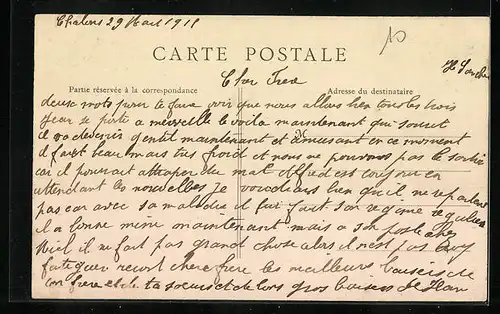 Chalons 29 Mars 1911
10
CARTE POSTALE
Cher Frere
Partie réservée à la correspondance
Adresse du destinataire
deux mots pour te faire voir que nous allons bien tous les trois
Jean se porte a merveille le voila maintenant qui sourit
il va devenir gentil maintenant et amusant en ce moment
M
il fait beau mais tres froid et nous ne pouvons pas le sortir
car il pourrait attraper du mal Alfred est toujours en
attendant les nouvelles je voudrais bien qu'il ne reparte
pas car avec sa maladie il lui faut son regime regulier
il a bonne mine maintenant mais a son poste chez
il ne fait pas grand chose alors il n'est pas trop
fatiguer recoit cher frere les meilleurs baisers de
ton frere et de ta soeur et de gros baisers de Jean